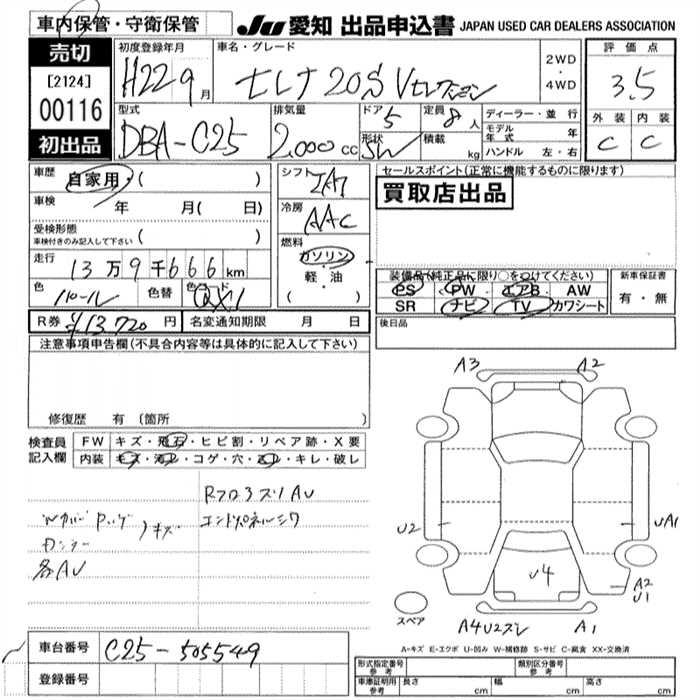 車内保管・守衛保管
JU 愛知 出品申込書 JAPAN USED CAR DEALERS ASSOCIATION
売切
[2124]
00116
初出品
初度登録年月
H22 9月
車名・グレード
セレナ 20S Vセレクション
2WD
・
4WD
評価点
3.5
外装 内装
C C
型式
DBA-C25
排気量
2,000 cc
ドア
5
形状
SW
定員
8人
積載
kg
ディーラー・並行
モデル年式 年
ハンドル 左・右
車歴
自家用・( )
車検
年 月( 日)
受検形態
車検付きのみ記入して下さい ( )
走行
13万9千666km
色
パール
色替
色コード
QX1
シフト
IAT
冷房
AAC
燃料
ガソリン
・
軽・油
( )
セールスポイント(正常に機能するものに限ります)
買取店出品
装備品(純正品に限り○をつけてください)
PS PW エアB AW
SR ナビ TV カワシート
新車保証書
有・無
R券 ¥13,720円
名変通知期限 月 日
後日品
注意事項申告欄(不具合内容等は具体的に記入して下さい)
修復歴 有 (箇所 )
検査員
記入欄
FW キズ・飛石・ヒビ割・リペア跡・X要
内装 キズ・汚レ・コゲ・穴・スレ・キレ・破レ
RフロアスリAU
エンドパネルシワ
キズ
各AU
A3 A2
U2 UA1
U4
A2
U1
A4U2スレ A1
スペア
A=キズ E=エクボ U=凹み W=補修跡 S=サビ C=腐食 XX=交換済
車台番号 C25-505549
登録番号
形式指定番号
参考
類別区分番号
参考
車庫証明用
参考
長さ cm 幅 cm 高さ cm